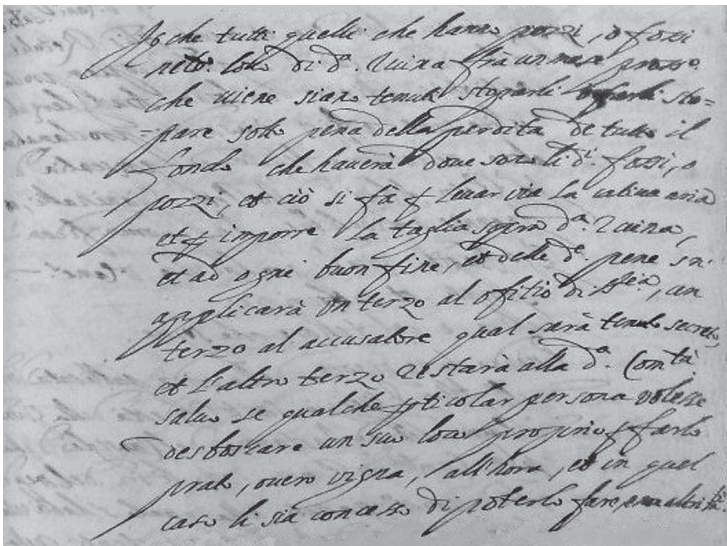 che tutti quelli che hanno pozzi, o fossi
loco di d.ª Ruina frà un mese pross.º
che viene siano tenuti stoparli sto=
=pare sotto pena della perdita de tutto il
fondo che haverà dove sono li d.i fossi, o
pozzi, et ciò si fà levar via la cativa aria
et imporre la taglia sopra d.ª Ruina,
et ad ogni buon fine, et delle d.e pene
applicarà un terzo al offitio di, un
terzo al accusatore qual sarà tenuto secreto,
et l'altro terzo restarà alla d.ª Com.tà
salvo se qualche particolar persona volesse
desboscare un suo loco proprio farlo
prato, overo vigna, all'hora, et in quel
caso li sia concesso di poterlo fare